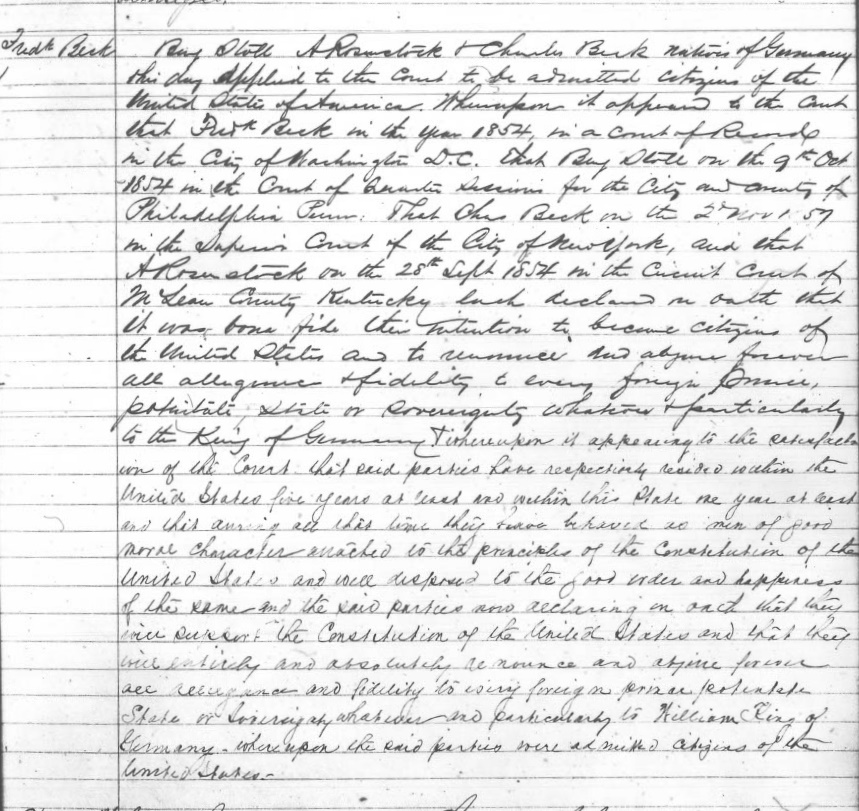 Fredk Beck
Benj Stoll A Rosenstock & Charles Beck natives of Germany
this day applied to the Court to be admitted citizens of the
United States of America. Whereupon it appeared to the Court
that Fredk Beck in the year 1854, in a court of Record
in the City of Washington D.C. that Benj Stoll on the 9th Oct
1854 in the Court of Quarter Sessions for the City and County of
Philadelphia Penn: That Chas Beck on the 2d Nov 1857
in the Superior Court of the City of New York, and that
A Rosenstock on the 28th Sept 1854 in the Circuit Court of
McLean County Kentucky each declared on oath that
it was bona fide their intention to become citizens of
the United States and to renounce and abjure forever
all allegiance & fidelity to every foreign Prince,
potentate, state or sovereignty whatsoever & particularly
to the King of Germany & whereupon it appearing to the satisfacti
ion of the Court that said parties have respectively resided within the
United States five years at least and within this State one year at least
and that during all that time they have behaved as men of good
moral character attached to the principles of the Constitution of the
United States and well disposed to the good order and happiness
of the same and the said parties now declaring on oath that they
will support the Constitution of the United States and that they
will entirely and absolutely renounce and abjure forever
all allegiance and fidelity to every foreign prince potentate
State or Sovereignty whatever and particularly to William King of
Germany - whereupon the said parties were admitted citizens of the
United States -